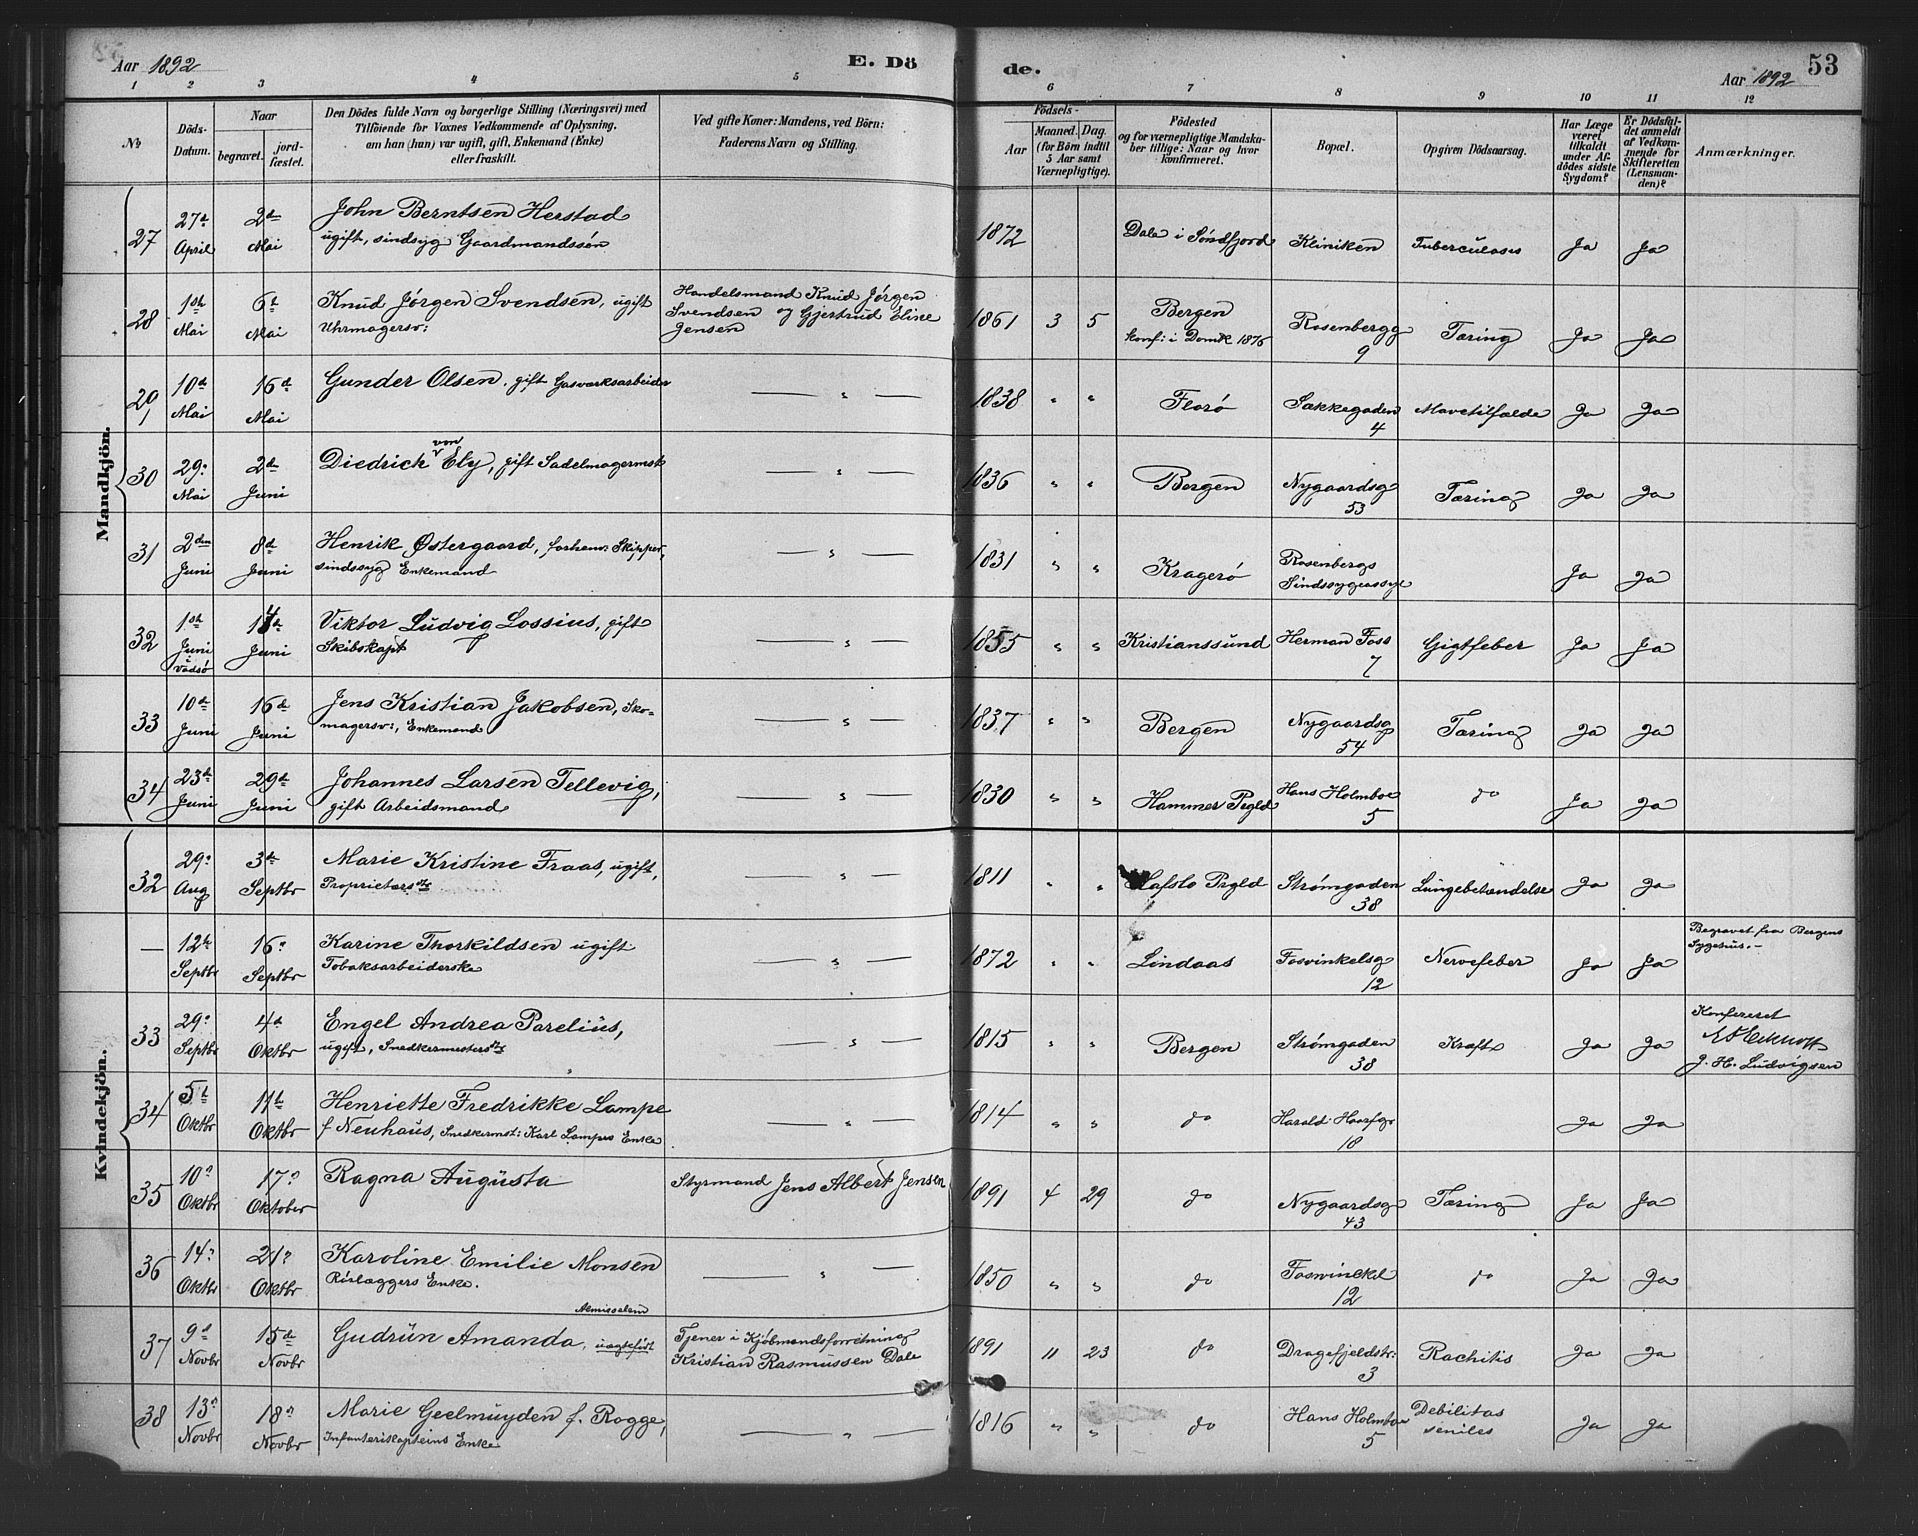 Aar 1892
E. Dö
de.
53
Aar 1892
1 2 3 4 5 6 7 8 9 10 11 12
No
Döds-Datum.
Naar
begravet.
jord-fæstet.
Den Dödes fulde Navn og borgerlige Stilling (Næringsvei) med
Tilföiende for Voxnes Vedkommende af Oplysning,
om han (hun) var ugift, gift, Enkemand (Enke)
eller fraskilt.
Ved gifte Koner: Mandens, ved Börn:
Faderens Navn og Stilling.
Födsels-
Aar
Maaned. Dag.
(for Börn indtil
5 Aar samt
Værnepligtige).
Födested
og for værnepligtige Mandska-
ber tillige: Naar og hvor
konfirmeret.
Bopæl.
Opgiven Dödsaarsag.
Har Læge
været
tilkaldt
under Af-
dödes sidste
Sygdom?
Er Dödsfal-
det anmeldt
af Vedkom-
mende for
Skifteretten
(Lensman-
den)?
Anmærkninger.
Mandkjön.
27 27d April 2den Mai John Berntsen Herstad
ugift, sindsyg Gaardmandssøn
1872 Dale i Søndfjord Kliniken Tuberculosis Ja Ja
28 1ste Mai 6te Mai Knud Jørgen Svendsen, ugift
Uhrmagersv:
Handelsmand Knud Jørgen
Svendsen og Gjertrud Eline
Jensen
1861 3 5 Bergen
konf: i Domk 1876
Rosenbergg
9
Tæring Ja Ja
29 10d Mai 16d Mai Gunder Olsen, gift Gasværksarbeider
— " — 1838 " " Florø Sækkegaden
4
Mavetilfælde Ja Ja
30 29. Mai 2den Juni Diedrich von Ely, gift Sadelmagermst
— " — 1836 " " Bergen Nygaardsg
53
Tæring Ja Ja
31 2den Juni 8d Juni Henrik Østergaard, forhenv: Skipper,
sindssyg Enkemand
— " — 1831 " " Kragerø Rosenbergs
Sindssygeassyl
Ja Ja
32 1ste Juni Vadsø 14d Juni Viktor Ludvig Lossius, gift
Skibskapt
— " — 1855 " " Kristianssund Herman Foss
7
Gigtfeber Ja Ja
33 10d Juni 16d Juni Jens Kristian Jakobsen, Sko-
magersv:, Enkemand
— " — 1837 " " Bergen Nygaardsg
54
Tæring Ja Ja
34 23d Juni 29d Juni Johannes Larsen Tellevig,
gift Arbeidsmand
— " — 1830 " " Hammer Prgld Hans Holmboe
5
do Ja Ja
Kvindekjön.
32 29. Aug 3die Septbr Marie Kristine Fraas, ugift,
Proprietærs dtr
— " — 1811 " " Hafslo Prgld Strømgaden
38
Lungebetændelse Ja Ja
— 12te Septbr 16. Septbr Karine Thorkildsen ugift
Tobaksarbeiderske
— " — 1872 " " Lindaas Fosvinkelsg
12
Nervefeber Ja Ja Begravet fra Bergens
Sygehus.—
33 29. Septbr 4d Oktbr Engel Andrea Parelius,
ugift, Snedkermesters dtr
— " — 1815 " " Bergen Strømgaden
38
Kræft Ja Ja Konfereret
J. H. Ludvigsen
34 5t Oktbr 11te Oktbr Henriette Fredrikke Lampe
f Neuhaus, Snedkermst: Karl Lampes Enke
— " — 1814 " " do Harald Haarfgr
18
Ja Ja
35 10. Oktbr 17. Oktober Ragna Augusta
Styrmand Jens Albert Jensen
1891 4 29 do Nygaardsg
43
Tæring Ja Ja
36 14. Oktbr 21. Oktbr Karoline Emilie Monsen
Rislæggers Enke.
— " — 1850 " " do Fosvinckel
12
do Ja Ja
37 9d Novbr 15de Novbr Almisselem
Gudrun Amanda, uægtefødt
Tjener i Kjøbmandsforretning
Kristian Rasmussen Dale
1891 11 23 do Dragefjeldstr:
3
Rachitis Ja Ja
38 13. Novbr 18. Novbr Marie Geelmuyden f. Rogge,
Infanterikapteins Enke
— " — 1816 " " do Hans Holmboe
5
Debilitas
seniles
Ja Ja